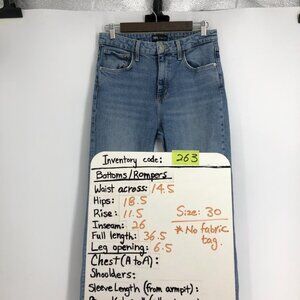 Inventory code: 263
Bottoms/Rompers
Waist across: 14.5
Hips: 18.5
Rise: 11.5
Inseam: 26
Full length: 36.5
Leg opening: 6.5
Size: 30
* No fabric
tag.
Chest (A to A):
Shoulders:
Sleeve Length (from armpit):